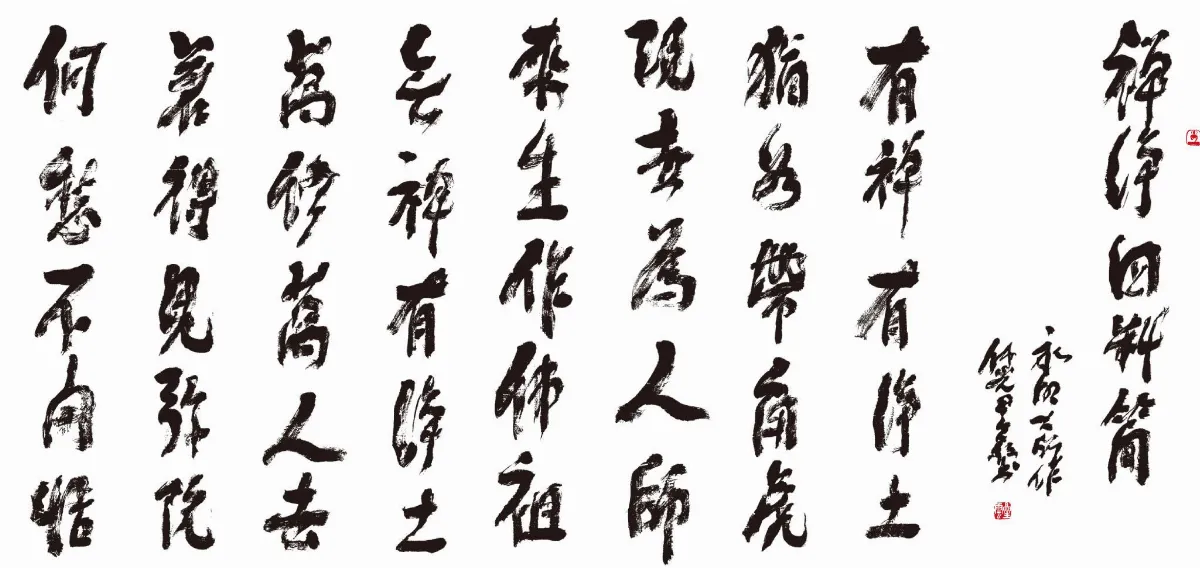 禪淨四料簡
永明大師作
有禪有淨土
猶如帶角虎
現世為人師
來生作佛祖
无禪有淨土
萬修萬人去
若得見彌陀
何愁不開悟